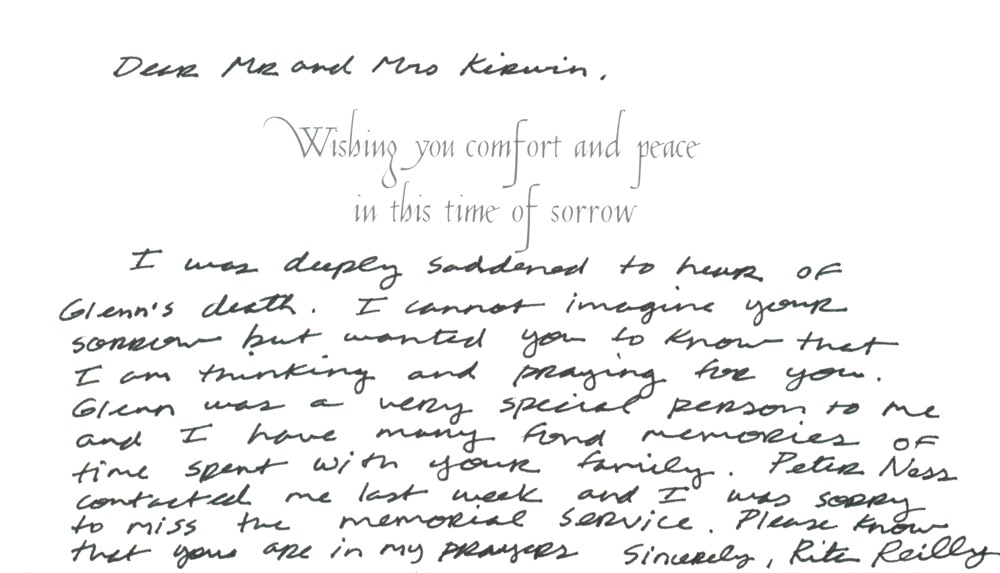 Dear Mr and Mrs Kirwin,
Wishing you comfort and peace
in this time of sorrow
I was deeply saddened to hear of
Glenn's death. I cannot imagine your
sorrow but wanted you to know that
I am thinking and praying for you.
Glenn was a very special person to me
and I have many fond memories of
time spent with your family. Peter Ness
contacted me last week and I was sorry
to miss the memorial service. Please know
that you are in my prayers Sincerely, Rita Reilly